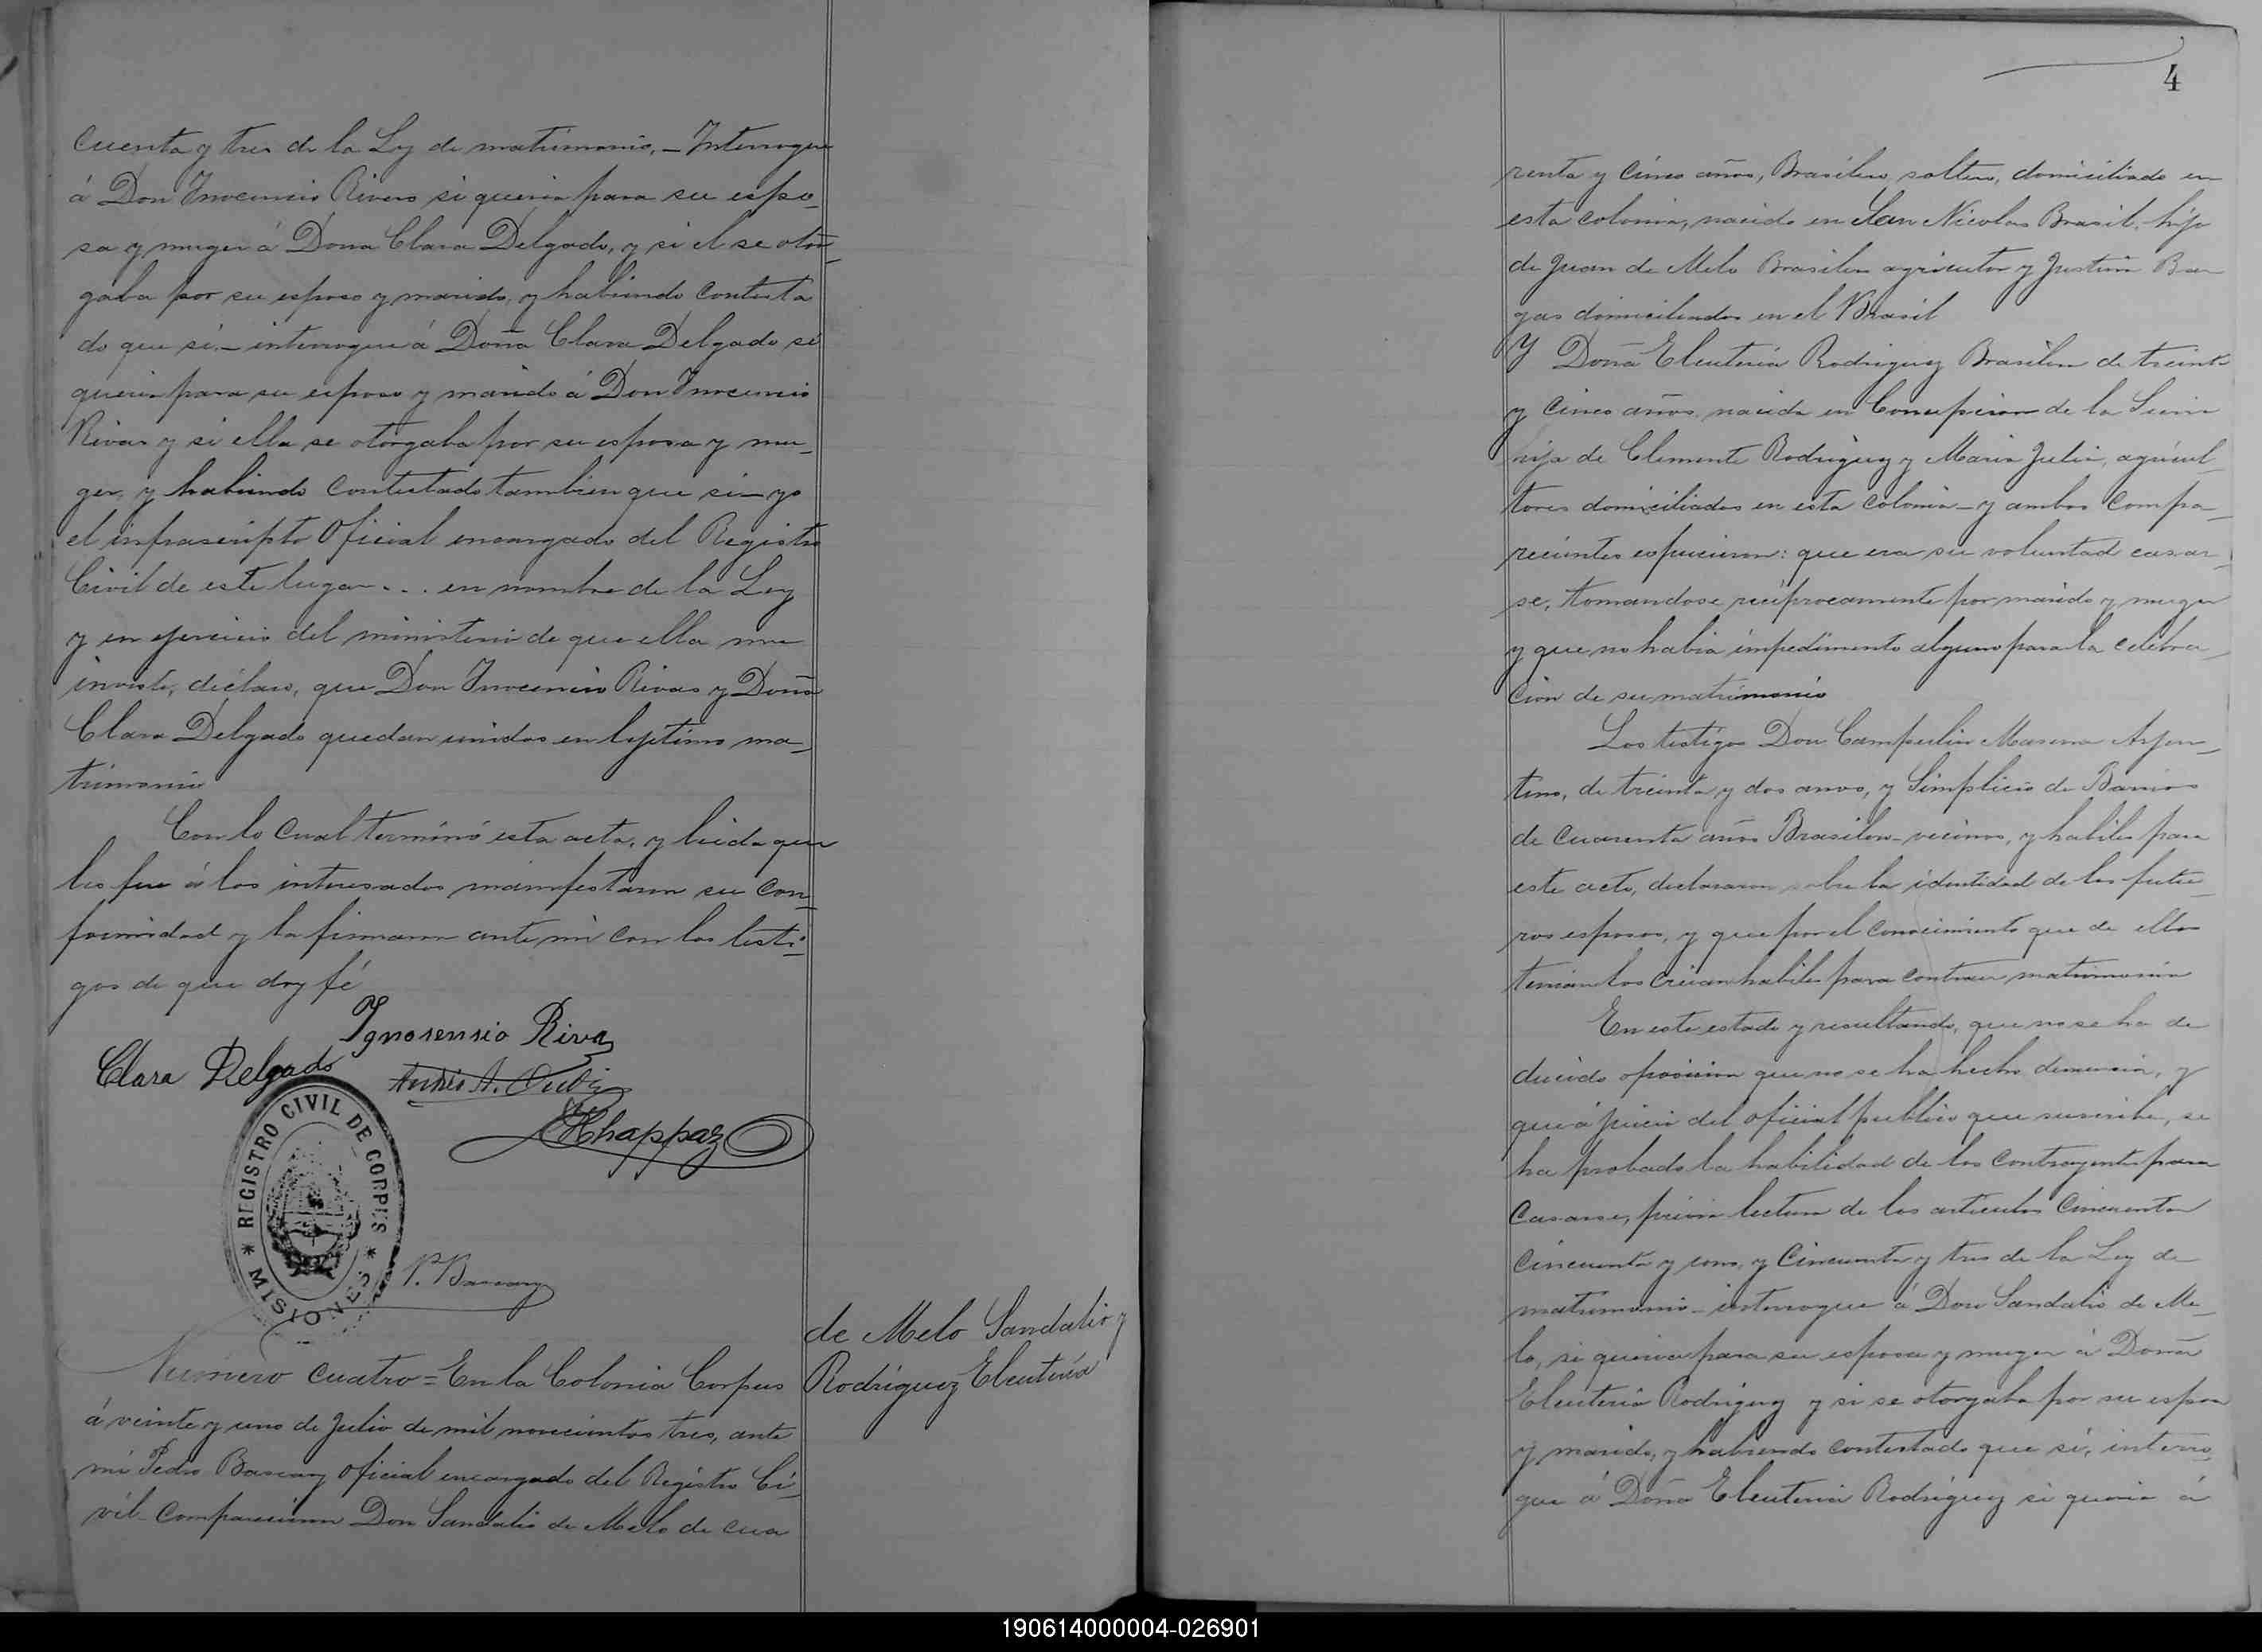 cuenta y tres de la Ley de matrimonio, _ Interrogue
á Don Inocencio Rivas si queria para su espo_
sa y muger á Dona Clara Delgado, y si el se otor_
gaba por su esposo y marido, y habiendo contesta
do que si._ interrogue á Doña Clara Delgado si
queria para su esposo y marido á Don Inocencio
Rivas y si ella se otorgaba por su esposa y mu_
ger, y habiendo contestado tambien que si _ yo
el infrascripto Oficial encargado del Registro
Civil de este lugar . . . en nombre de la Ley
y en ejercicio del ministerio de que ella me
inviste, déclaro, que Don Inocencio Rivas y Doña
Clara Delgado quedan unidos en lejitimo ma_
trimonio
Con lo cual terminó esta acta, y leida que
les fue á los interesados manifestaron su con_
formidad y la firmaron ante mi con los testi_
gos de que doy fé
Ignosensio Rivas
Clara Delgado
Chappaz
REGISTRO CIVIL DE CORPUS
* MISIONES *
P.
de Melo Sandalio y
Rodriguez Eleuteria
Numero cuatro = En la Colonia Corpus
á veinte y uno de Julio de mil novecientos tres, ante
mi Pedro oficial encargado del Registro Ci_
vil _ comparecieron Don Sandalio de Melo de cua
4
renta y cinco años, Brasilero, soltero, domiciliado en
esta colonia, nacido en San Nicolas Brasil, hijo
de Juan de Melo Brasilero agricultor y Justina Bar
gas domiciliados en el Brasil
Y Doña Eleuteria Rodriguez Brasilera de treinta
y cinco años, nacida en Concepcion de la Sierra
hija de Clemente Rodriguez y Maria Julia, agricul_
tores domiciliados en esta colonia _ y ambos compa_
recientes espusieron: que era su voluntad casar_
se, tomandose reciprocamente por marido y muger
y que no habia impedimento alguno para la celebra_
cion de su matrimonio
Los testigos Don Campulin Marena Arjen_
tino, de treinta y dos anos, y Simplicio de Barrios
de cuarenta años Brasilero _ vecinos, y habiles para
este acto, declararon sobre la identidad de los futu_
ros esposos, y que por el conocimiento que de ellos
tenian los creian habiles para contraer matrimonio
En este estado y resultando, que no se ha de
ducido oposicion que no se ha hecho denuncia, y
que á juicio del oficial publico que suscribe, se
ha probado la habilidad de los contrayentes para
casarse, previa lectura de los articulos Cincuenta
Cincuenta y uno, y Cincuenta y tres de la Ley de
matrimonio _ interrogue á Don Sandalio de Me_
lo, si queria para su esposa y muger á Doña
Eleuteria Rodriguez y si se otorgaba por su esposo
y marido, y habiendo contestado que si, interro_
gue á Doña Eleuteria Rodriguez si queria á
190614000004-026901